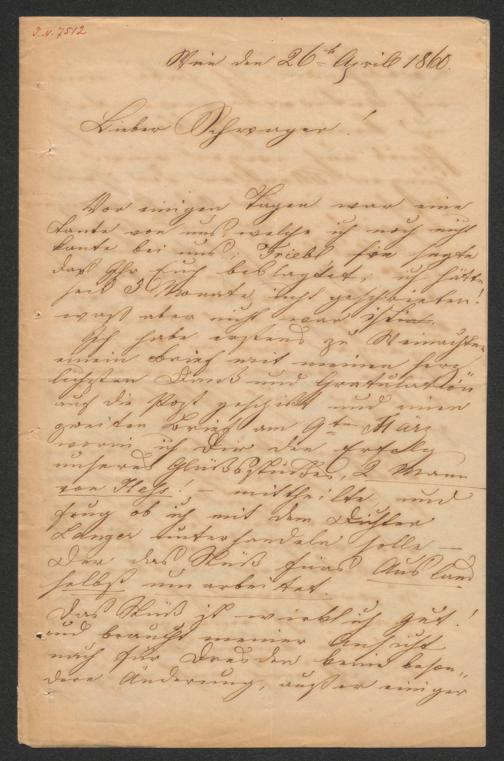 J.N. 7512
Wien den 26th April 1860.
Lieber Schwager!
Vor einigen Tagen war eine
Tante von uns, welche ich noch nicht
kante bei uns, Triebl sie sagte
daß Ihr Euch beklagtet, ich hätte
seid 3 Monate nicht geschrieben!
waß aber nicht war ist.
Ich habe erstens zu Weinachten
einen Brief mit meinen herz
lichsten Dank und Gratulation
auf die Post geschikt und einen
zweiten Brief am 9ten März
worin ich Dir den Erfolg
unseres Glücksstückes, 2 Mann
von Hess! – mittheilte und
frug ob ich mit dem Dichter
Langer unterhandeln solle –
der das Stück fürs Ausland
selbst umarbeitet.
Das Stück ist wirklich gut!
und braucht meiner Ansicht
nach für Dresden keine beson„
dere Änderung, außer einiger